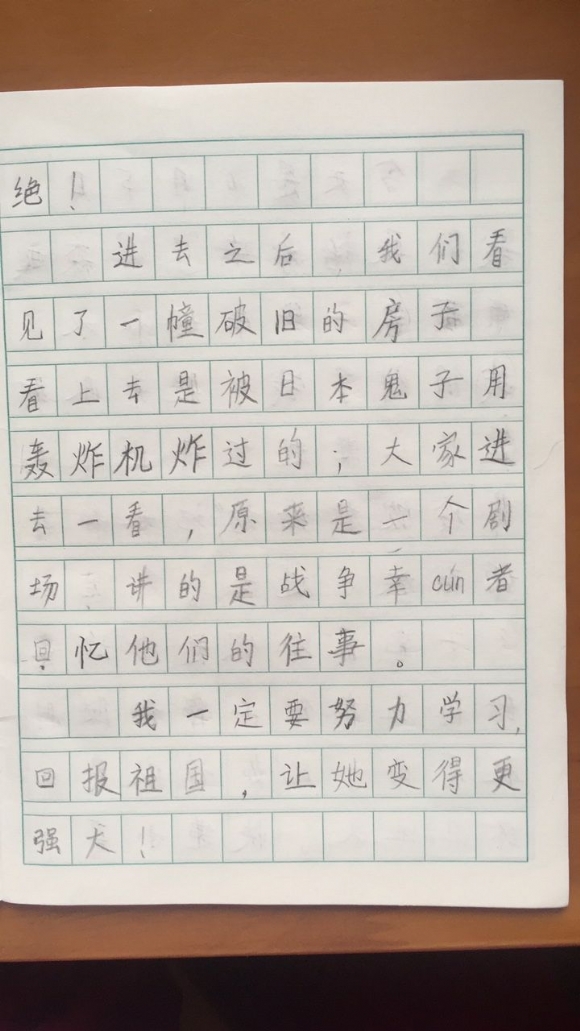 绝！
进去之后，我们看
见了一幢破旧的房子
看上去是被日本鬼子用
轰炸机炸过的；大家进
去一看，原来是一个剧
场，讲的是战争幸cún者
回忆他们的往事。
我一定要努力学习，
回报祖国，让她变得更
强大！